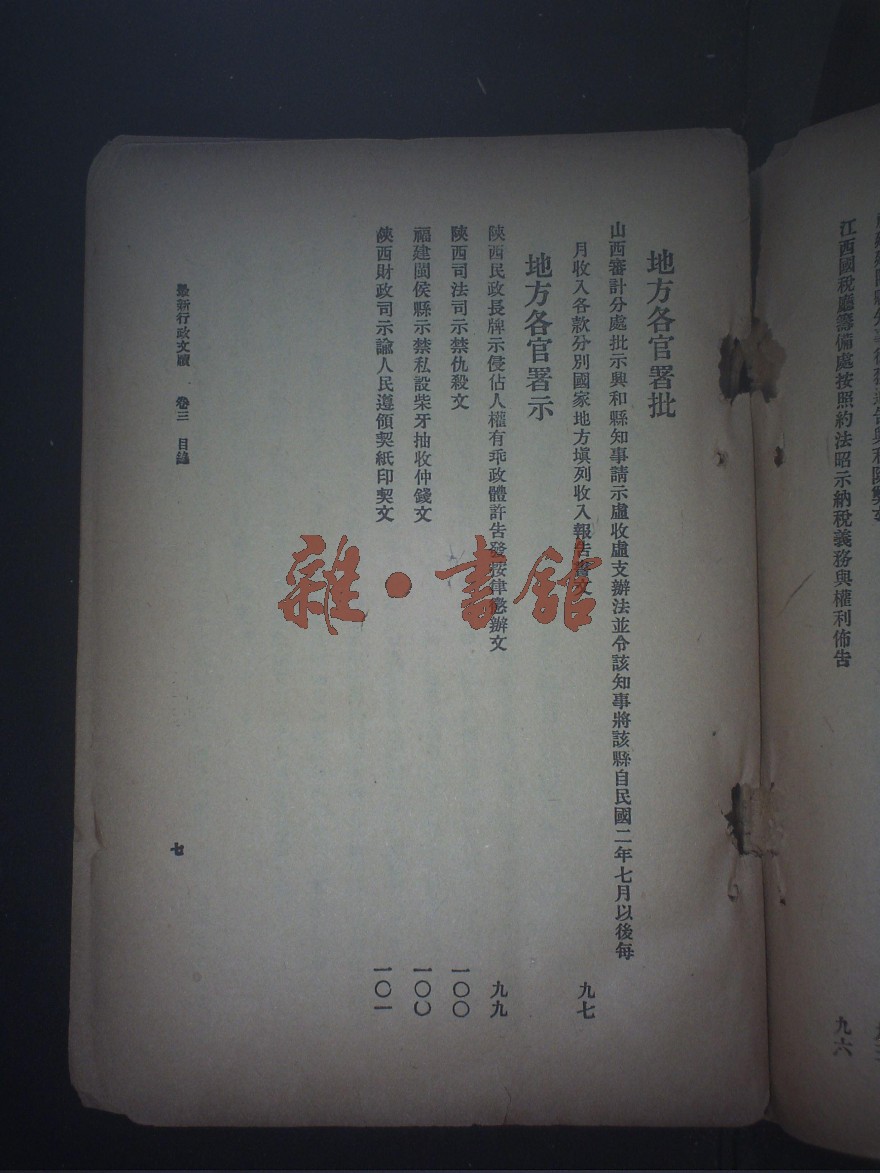 江西國稅廳籌備處按照約法昭示納稅義務與權利佈告
九六
地方各官署批
山西審計分處批示興和縣知事請示虛收虛支辦法並令該知事將該縣自民國二年七月以後每
月收入各款分別國家地方塡列收入報告書文
九七
地方各官署示
陝西民政長牌示侵佔人權有乖政體許告發按律懲辦文
九九
陝西司法司示禁仇殺文
一〇〇
福建閩侯縣示禁私設柴牙抽收仲錢文
一〇〇
陝西財政司示諭人民遵領契紙印契文
一〇一
最新行政文牘 卷三 目錄
七
雜·書館